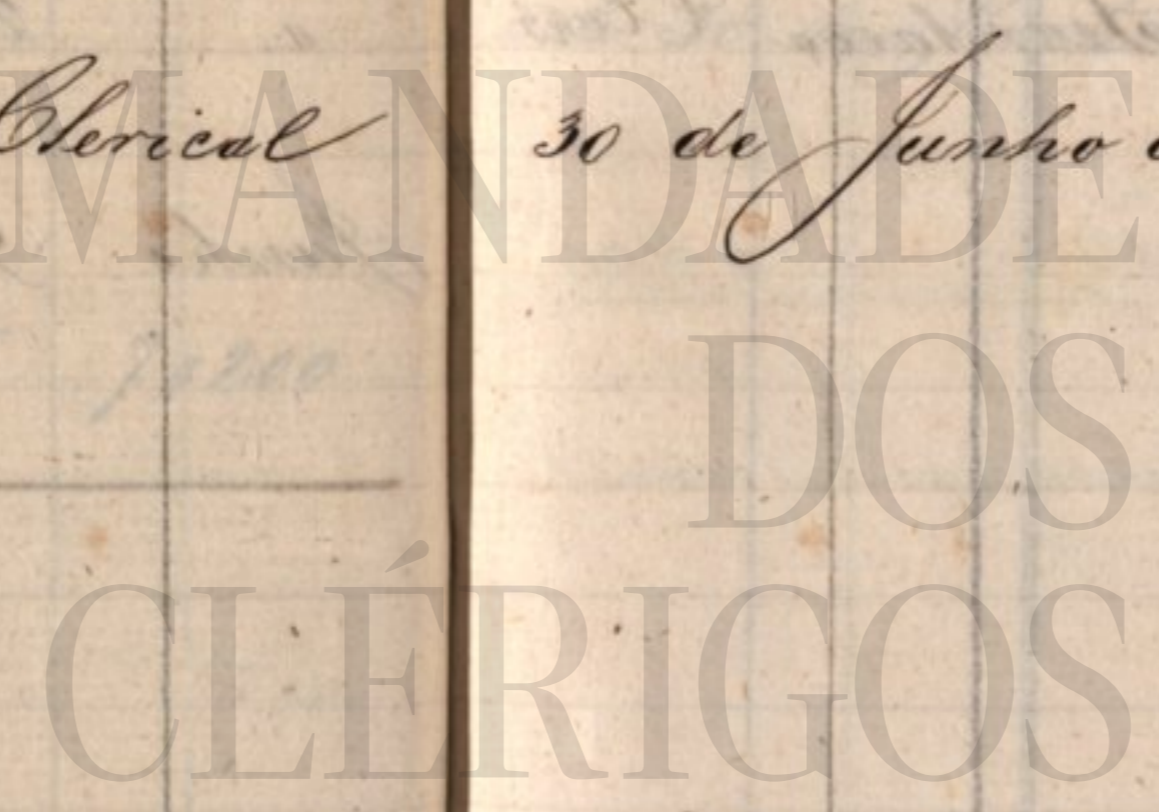 Clerical 30 de Junho
MANDADE
DOS
CLÉRIGOS